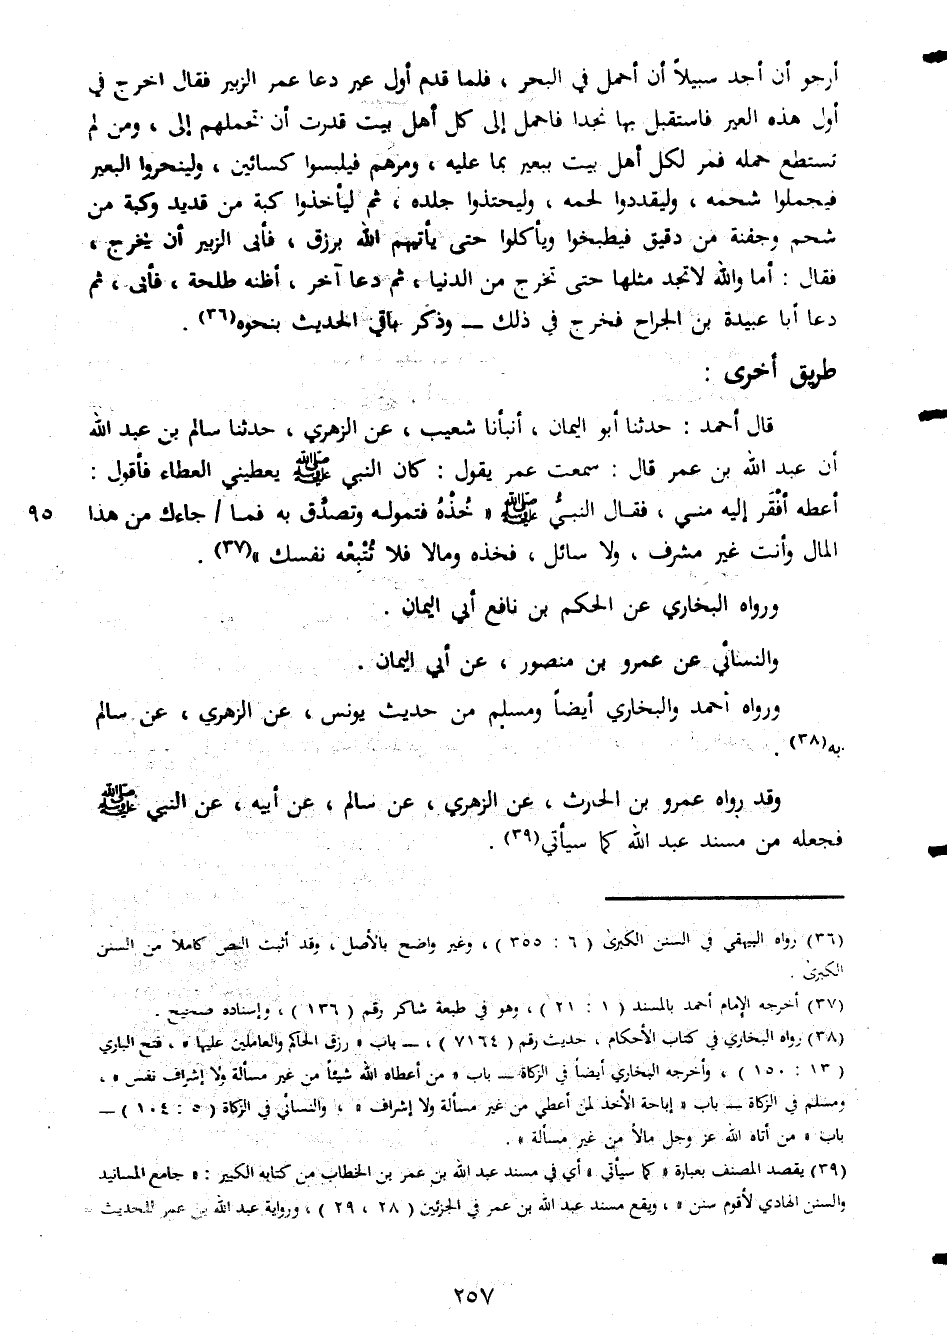 أرجو أن أجد سبيلاً أن أحمل في البحر ، فلما قدم أول عير دعا عمر الزبير فقال اخرج في
أول هذه العير فاستقبل بها نجدا فاحمل إلى كل أهل بيت قدرت أن تحملهم إلى ، ومن لم
تستطع حمله فمر لكل أهل بيت ببعير بما عليه ، ومرهم فيلبسوا كسائين ، ولينحروا البعير
فيجملوا شحمه ، وليقددوا لحمه ، وليحتذوا جلده ، ثم ليأخذوا كبة من قديد وكبة من
شحم وجفنة من دقيق فيطبخوا ويأكلوا حتى يأتيهم الله برزق ، فأبى الزبير أن يخرج ،
فقال : أما والله لاتجد مثلها حتى تخرج من الدنيا ، ثم دعا آخر ، أظنه طلحة ، فأبى ، ثم
دعا أبا عبيدة بن الجراح فخرج في ذلك ــ وذكر باقي الحديث بنحوه(٣٦) .
طريق أخرى :
قال أحمد : حدثنا أبو اليمان ، أنبأنا شعيب ، عن الزهري ، حدثنا سالم بن عبد الله
أن عبد الله بن عمر قال : سمعت عمر يقول : كان النبي ﷺ يعطيني العطاء فأقول :
أعطه أفْقَر إليه منـي ، فقـال النبـيُّ ﷺ « خُذْهُ فتمولـه وتصدُق به فمـا / جاءك من هذا ٩٥
المال وأنت غير مشرف ، ولا سائل ، فخذه ومالا فلا تُتْبِعْه نفسك »(٣٧) .
ورواه البخاري عن الحكم بن نافع أبي اليمان .
والنسائي عن عمرو بن منصور ، عن أبي اليمان .
ورواه أحمد والبخاري أيضاً ومسلم من حديث يونس ، عن الزهري ، عن سالم
به(٣٨) .
وقد رواه عمرو بن الحارث ، عن الزهري ، عن سالم ، عن أبيه ، عن النبي ﷺ
فجعله من مسند عبد الله كما سيأتي(٣٩) .
(٣٦) رواه البيهقي في السنن الكبرى ( ٦ : ٣٥٥ ) ، وغير واضح بالأصل ، وقد أثبت النص كاملاً من السنن
الكبرى .
(٣٧) أخرجه الإمام أحمد بالمسند ( ١ : ٢١ ) ، وهو في طبعة شاكر رقم ( ١٣٦ ) ، وإسناده صحيح .
(٣٨) رواه البخاري في كتاب الأحكام ، حديث رقم ( ٧١٦٤ ) ، ــ باب « رزق الحاكم والعاملين عليها » ، فتح الباري
( ١٣ : ١٥٠ ) ، وأخرجه البخاري أيضاً في الزكاة ــ باب « من أعطاه الله شيئاً من غير مسألة ولا إشراف نفس » ،
ومسلم في الزكاة ــ باب « إباحة الأخذ لمن أعطي من غير مسألة ولا إشراف » ، والنسائي في الزكاة ( ٥ : ١٠٤ ) ــ
باب « من أتاه الله عز وجل مالاً من غير مسألة » .
(٣٩) يقصد المصنف بعبارة « كما سيأتي » أي في مسند عبد الله بن عمر بن الخطاب من كتابه الكبير : « جامع المسانيد
والسنن الهادي لأقوم سنن » ، ويقع مسند عبد الله بن عمر في الجزئين ( ٢٨ ، ٢٩ ) ، ورواية عبد الله بن عمر للحديث =
٢٥٧